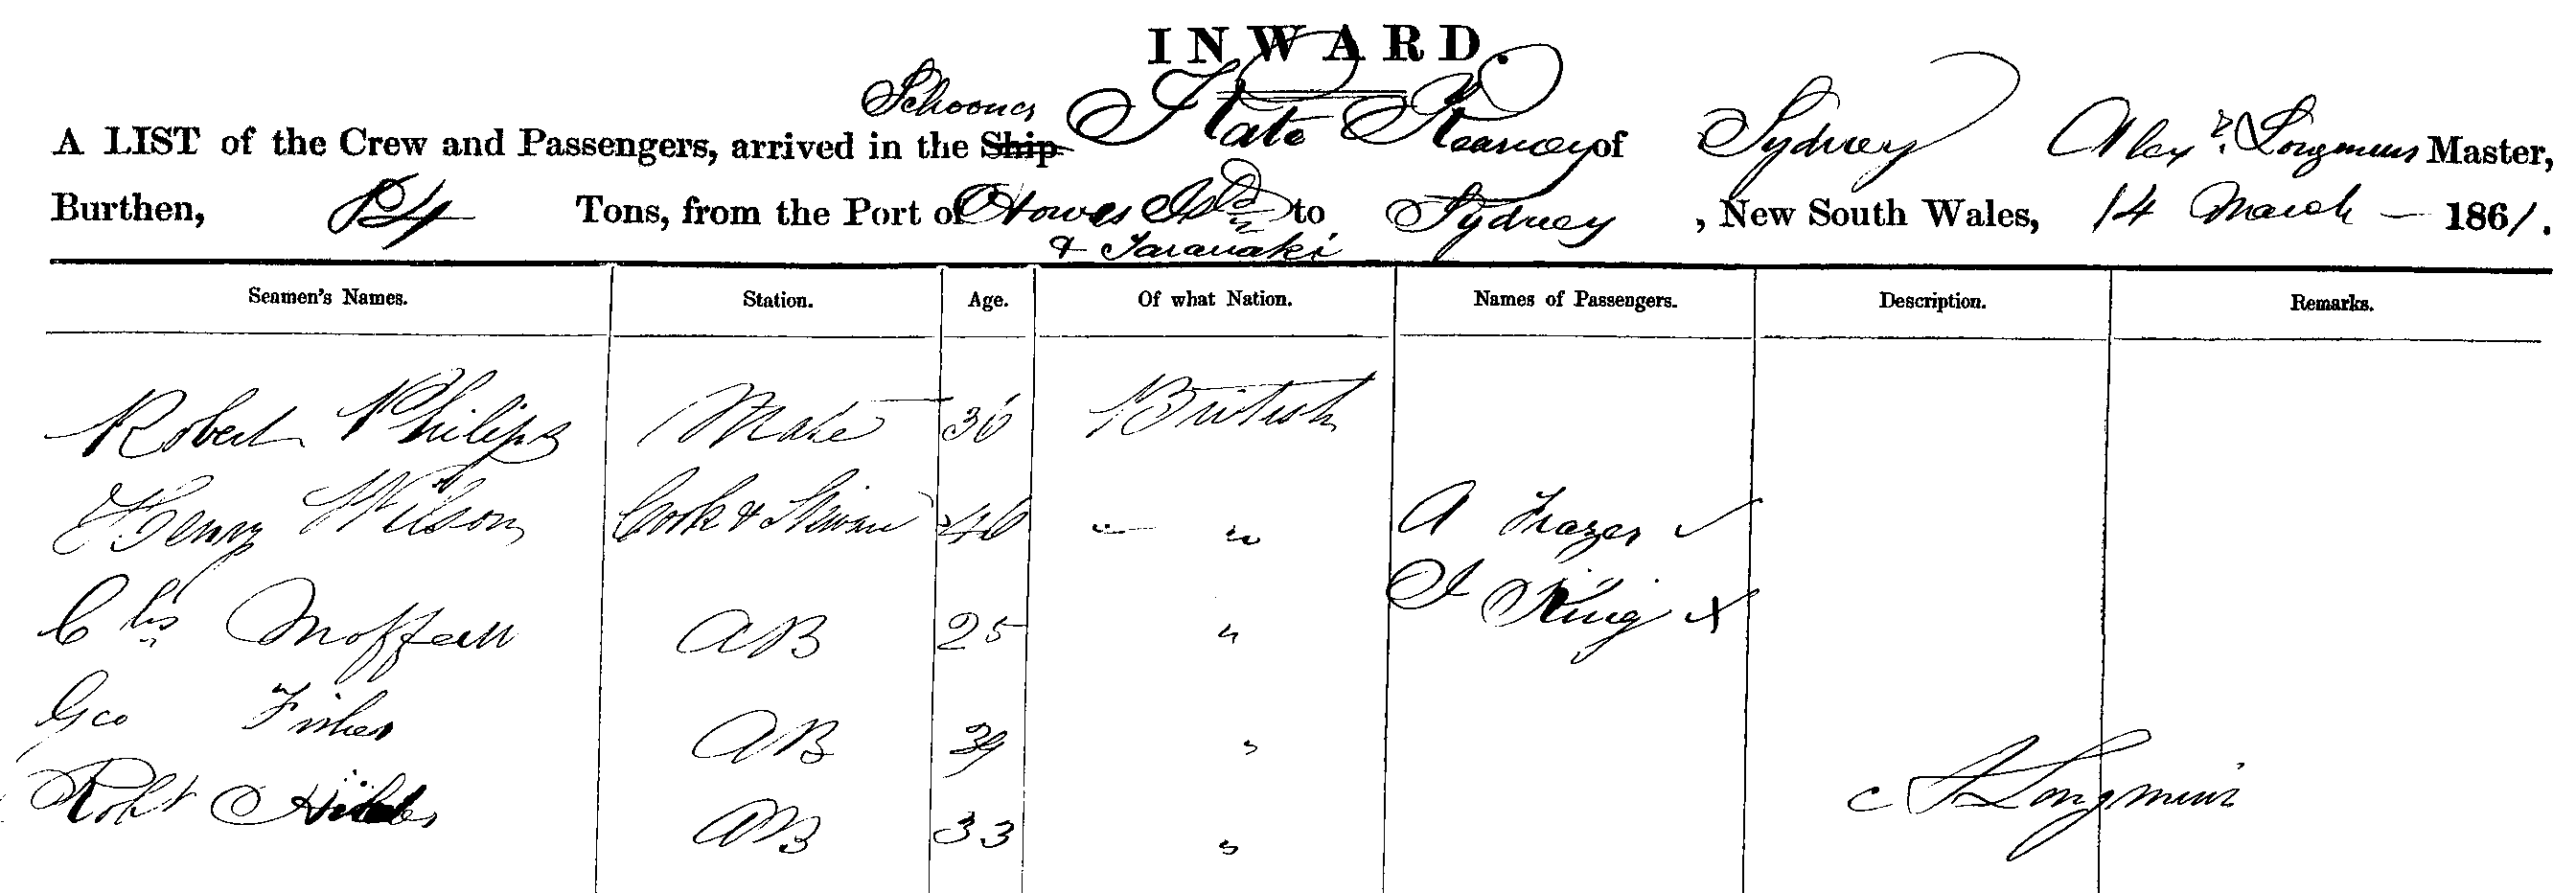 INWARD.
Schooner
A LIST of the Crew and Passengers, arrived in the Ship Kate Kearney of Sydney Alexr. Longmuir Master,
Burthen, Tons, from the Port of Howes Isld to Sydney, New South Wales, 14 March 1861.
& Taranaki
Seamen's Names. Station. Age. Of what Nation. Names of Passengers. Description. Remarks.
Robert Philips Mate 36 British
Henry Wilson Cook & 40 " " A Frazer ✓
J King X
Chs Moffatt AB 25 "
Geo Fisher AB 39 "
Robt AB 33 "
A Longmuir